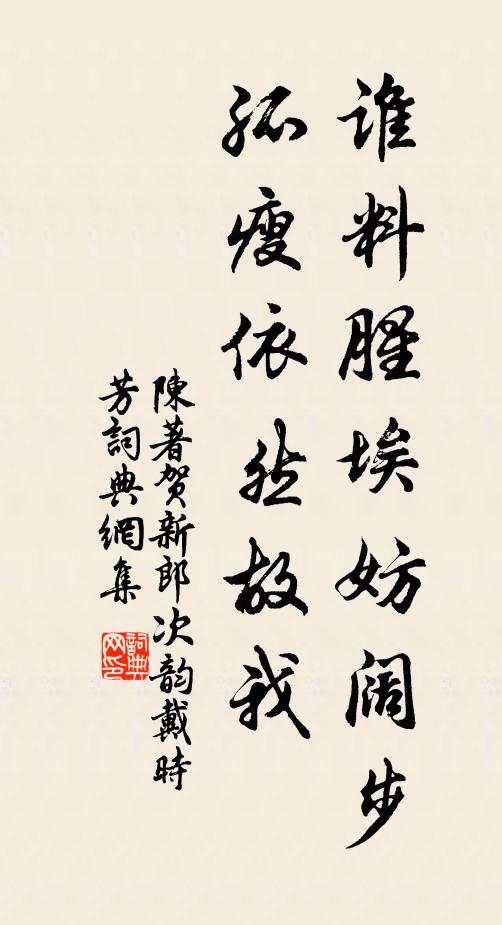 谁料腥埃妨阔步
孤瘦依然故我
陳著贺新郎次韵戴時
芳詞典網集
詞典网印